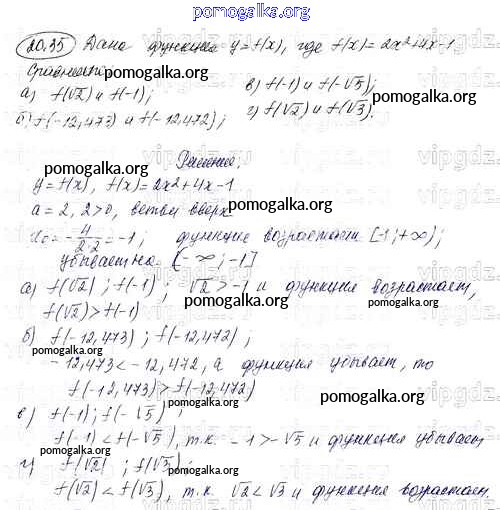 pomogalka.org
20.35 Дана функция y=f(x), где f(x)=2x²+4x-1
Сравните: pomogalka.org
а) f(√2) и f(-1); в) f(-1) и f(-√5);
б) f(-12,473) и f(-12,472); г) f(√2) и f(√3).
pomogalka.org pomogalka.org
Решение.
pomogalka.org pomogalka.org
y=f(x), f(x)=2x²+4x-1
a=2, 2>0, ветви вверх
pomogalka.org
x₀=-4/2·2=-1; функция возрастает [-1;+∞);
убывает на (-∞;-1]
pomogalka.org
а) f(√2); f(-1); √2>-1 и функция возрастает,
f(√2)>f(-1)
pomogalka.org
б) f(-12,473); f(-12,472);
pomogalka.org pomogalka.org
-12,473<-12,472, а функция убывает, то
f(-12,473)>f(-12,472)
pomogalka.org
в) f(-1); f(-√5)
pomogalka.org
f(-1)<f(-√5), т.к. -1>-√5 и функция убывает
г) f(√2); f(√3)
pomogalka.org pomogalka.org
f(√2)<f(√3), т.к. √2<√3 и функция возрастает.